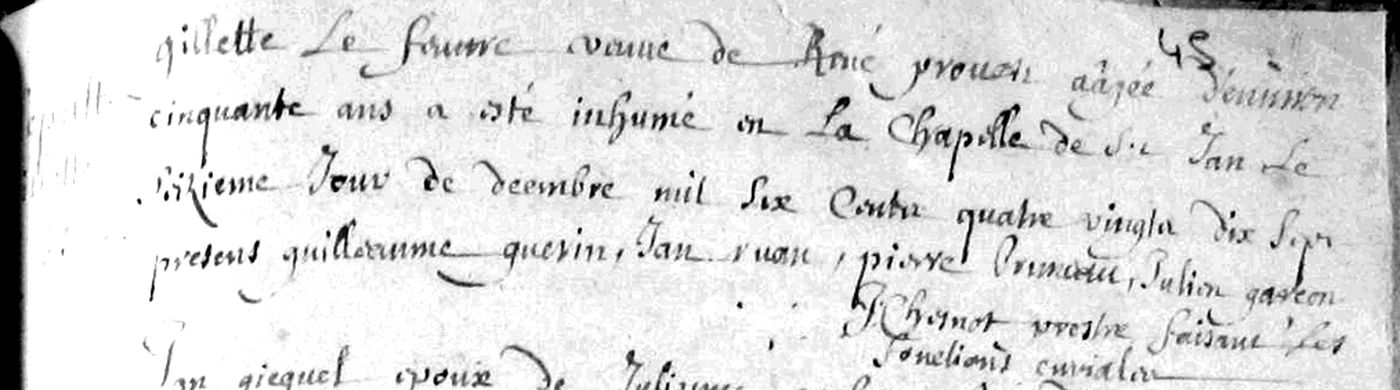 45
gillette Le feuvre veuve de René prouen aagée d'environ
cinquante ans a esté inhumé en La Chapelle de St Jan Le
sizieme Jour de decembre mil six Cents quatre vingts dix sept
presens guillaume guerin, Jan ruan, pierre Bruneau, Julien garçon
J Chesnot prestre faisant les
fonctions curiales
Jan gicquel epoux de Julienne